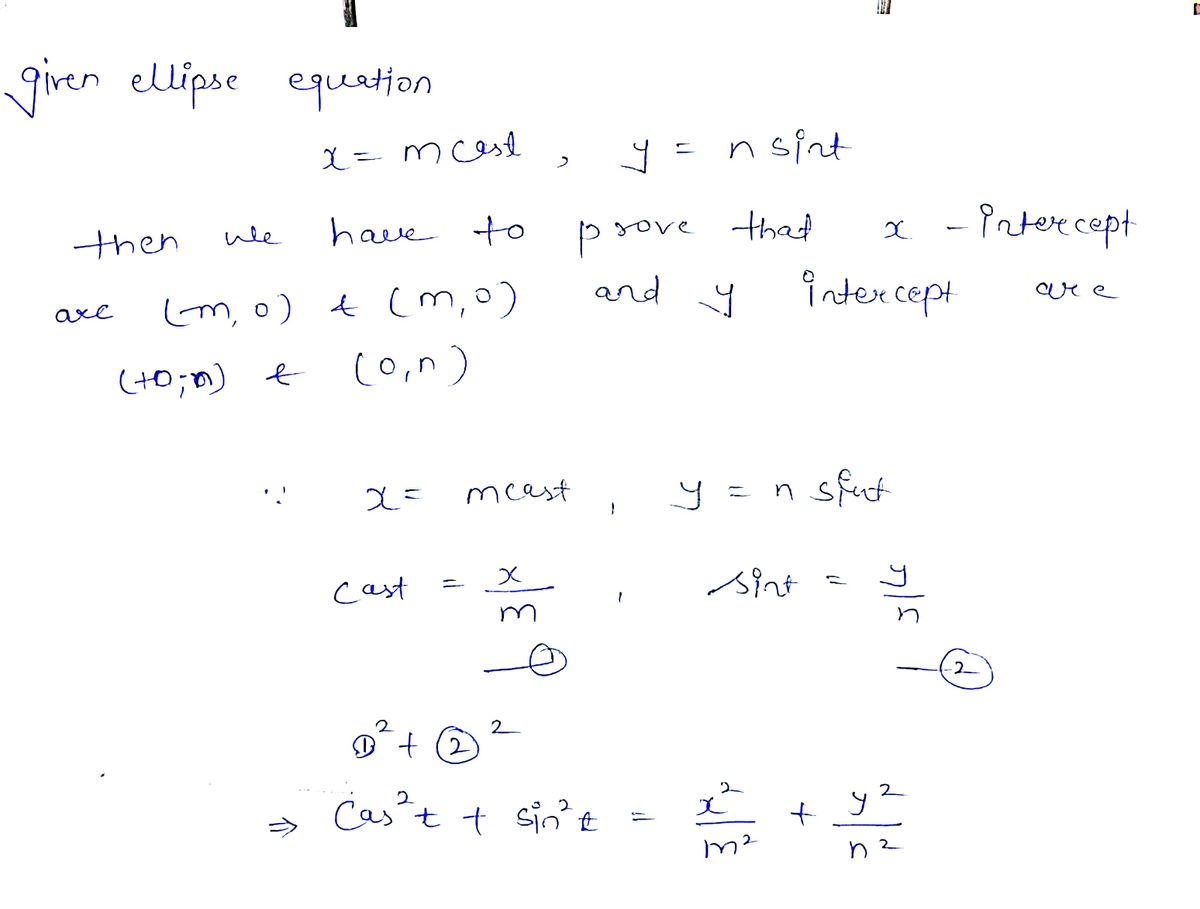 given ellipse equation
x = m cost , y = n sint
then we have to prove that x - intercept
are (-m, 0) & (m, 0) and y intercept are
(+0, -n) & (0, n)
∵ x = m cost , y = n sint
cost = x/m , sint = y/n
—① —②
①² + ②²
⇒ Cos²t + sin²t = x²/m² + y²/n²